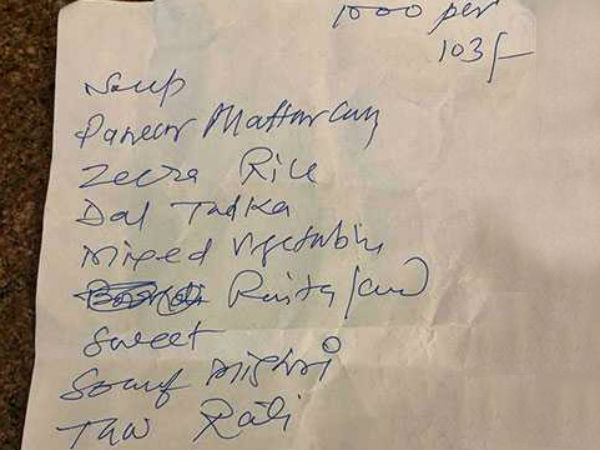 1000 per
103/-
Soup
Paneer Matter Cury
Zeera Rice
Dal Tadka
Mixed Vegetable
Raita/curd
Sweet
Sounf mishri
Tawa Roti